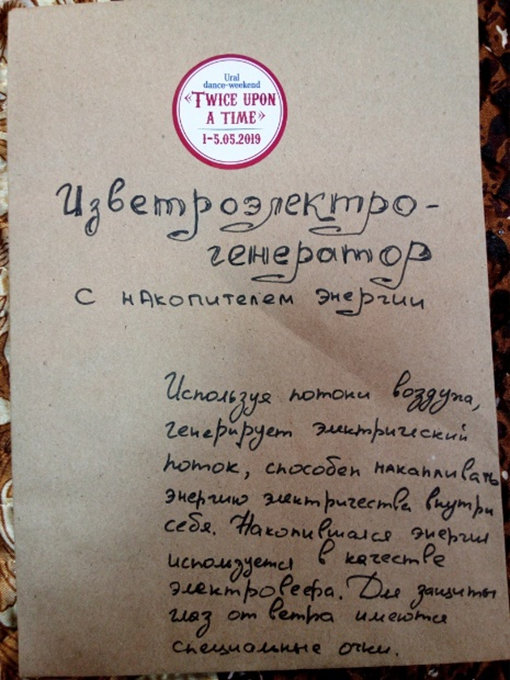 Ural
dance-weekend
«Twice upon
a time»
1-5.05.2019
Изветроэлектро-
генератор
с накопителем энергии
Используя потоки воздуха,
генерирует электрический
поток, способен накапливать
энергию электричества внутри
себя. Накопившаяся энергия
используется в качестве
электровеера. Для защиты
глаз от ветра имеются
специальные очки.